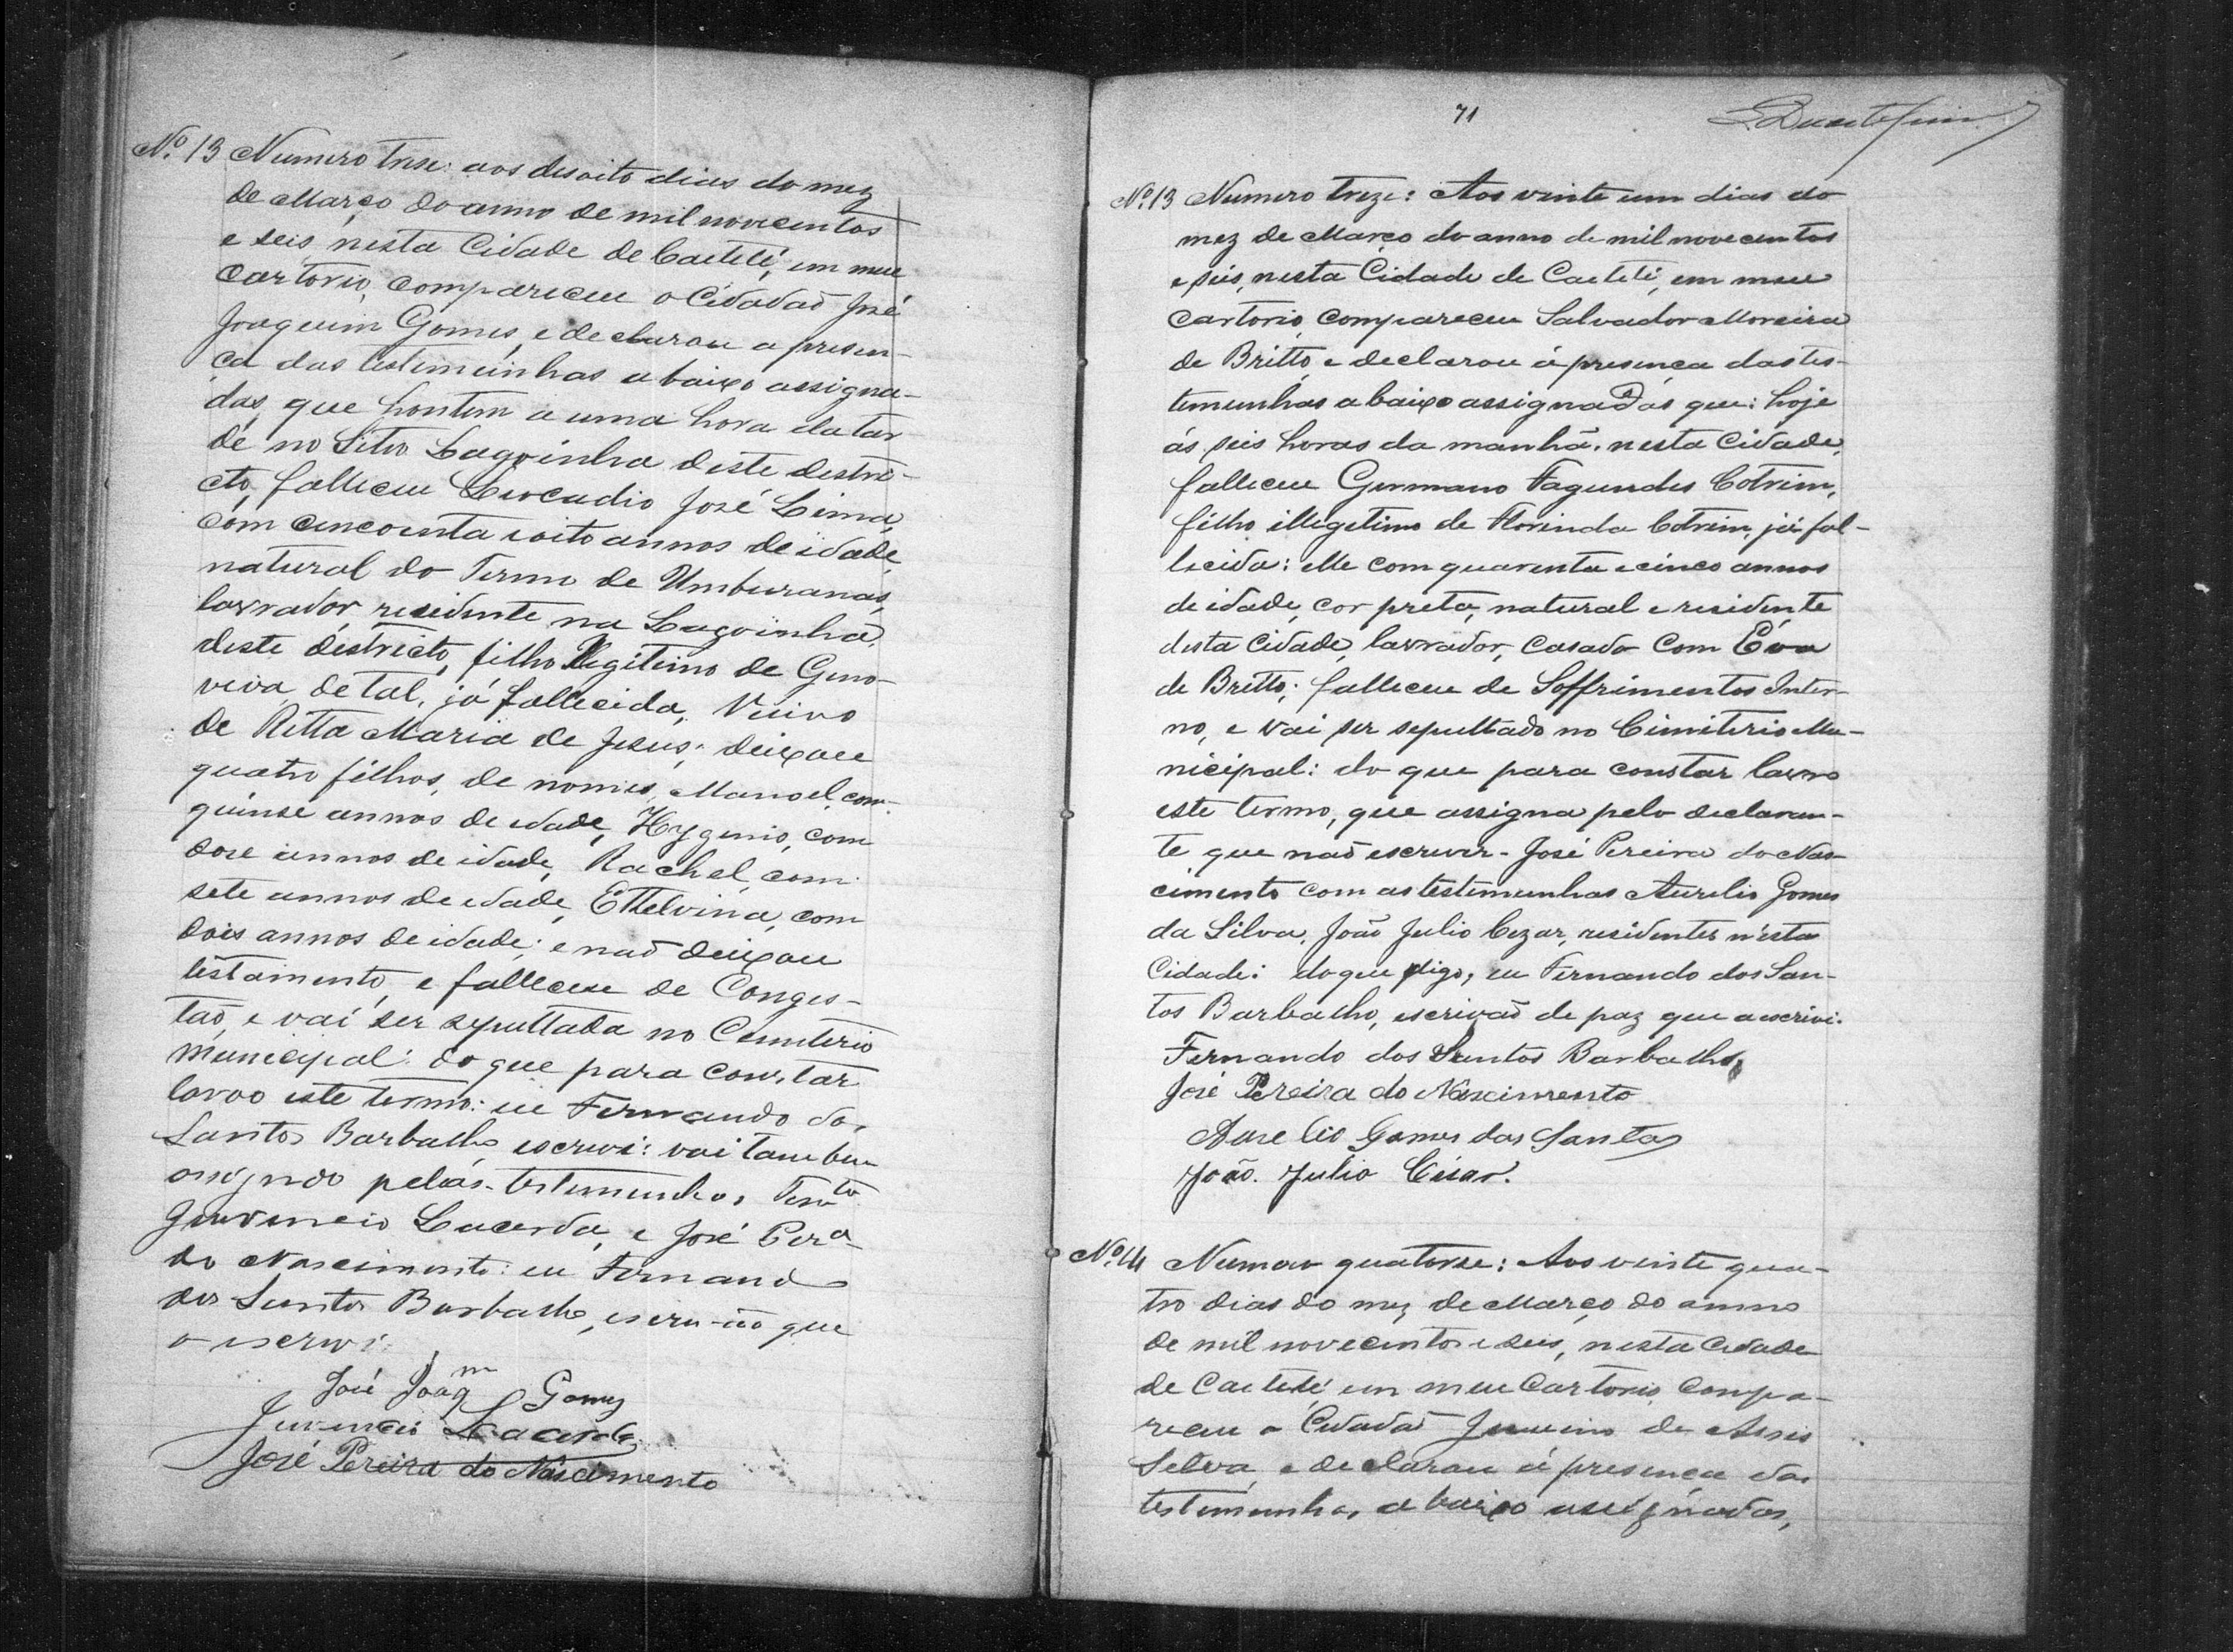 Nº 13 Numero trese: aos desoito dias do mez
de Março do anno de mil novecentos
e seis nesta Cidade de Caeteté, em meu
Cartorio, compareceu o Cidadaõ José
Joaquim Gomes, e declarou a presen-
ça das testimunhas abaixo assigna-
das, que hontem a uma hora da tar
de no Sitio Lagoinha deste destri-
cto, falleceu Leocadio José Lima,
com cincoenta e oito annos de idade,
natural do Termo de Umburanas,
lavrador, residente na Lagoinha,
deste destricto, filho Illegitimo de Geno-
veva de tal, já fallecida, Viuvo
de Ritta Maria de Jesus; deixou
quatro filhos, de nomes, Manoel, com
quinse annos de edade, Hygenio, com
dose annos de idade, Rachel, com
sete annos de edade, Ethelvina, com
dois annos de idade; e naõ deixou
testamento, e falleceu de Conges-
taõ, e vai ser sepultada no Cemiterio
Municipal: do que para constar
lavro este termo: eu Fernando dos
Santos Barbalho escrevi: vai tambem
assignado pelas testimunhas, Tente
Juvencio Lacerda, e José Pera
do Nascimento: eu Fernando
dos Santos Barbalho, escrivão que
o escrevi.
José Joaqm Gomes
Juvencio Lacerda
José Pereira do Nascimento
71
Nº 13 Numero treze: Aos vinte um dias do
mez de Março do anno de mil novecentos
e seis, nesta Cidade de Caeteté, em meu
Cartorio, compareceu Salvador Moreira
de Britto, e declarou á presença das tes-
temunhas abaixo assignadas que: hoje
ás seis horas da manhã, nesta Cidade,
falleceu Germano Fagundes Cotrim,
filho illegetimo de Florinda Cotrim, já fal-
lecida: elle com quarenta e cinco annos
de idade, cor preta, natural e residente
desta Cidade, lavrador, casado com Eva
de Britto; falleceu de Soffrimentos Inter-
no, e vai ser sepultado no Cimiterio Mu-
nicipal: do que para constar lavro
este termo, que assigna pelo declaran-
te que naõ escrever - José Pereira do Nas-
cimento com as testimunhas Aurelio Gomes
da Silva, João Julio Cezar, residentes n'esta
Cidade: do que digo, eu Fernando dos San-
tos Barbalho, escrivaõ de paz que a escrivi.
Fernando dos Santos Barbalho,
José Pereira do Nascimento
Aurelio Gomes dos Santos
João. Julio César.
Nº 14 Numero quatorse: Aos vinte qua-
tro dias do mez de Março do anno
de mil novecentos e seis, nesta Cidade
de Caeteté em meu Cartorio, compa-
receu o Cidadaõ de Assis
Silva, e declarou á presença das
testimunhas abaixo assignadas,